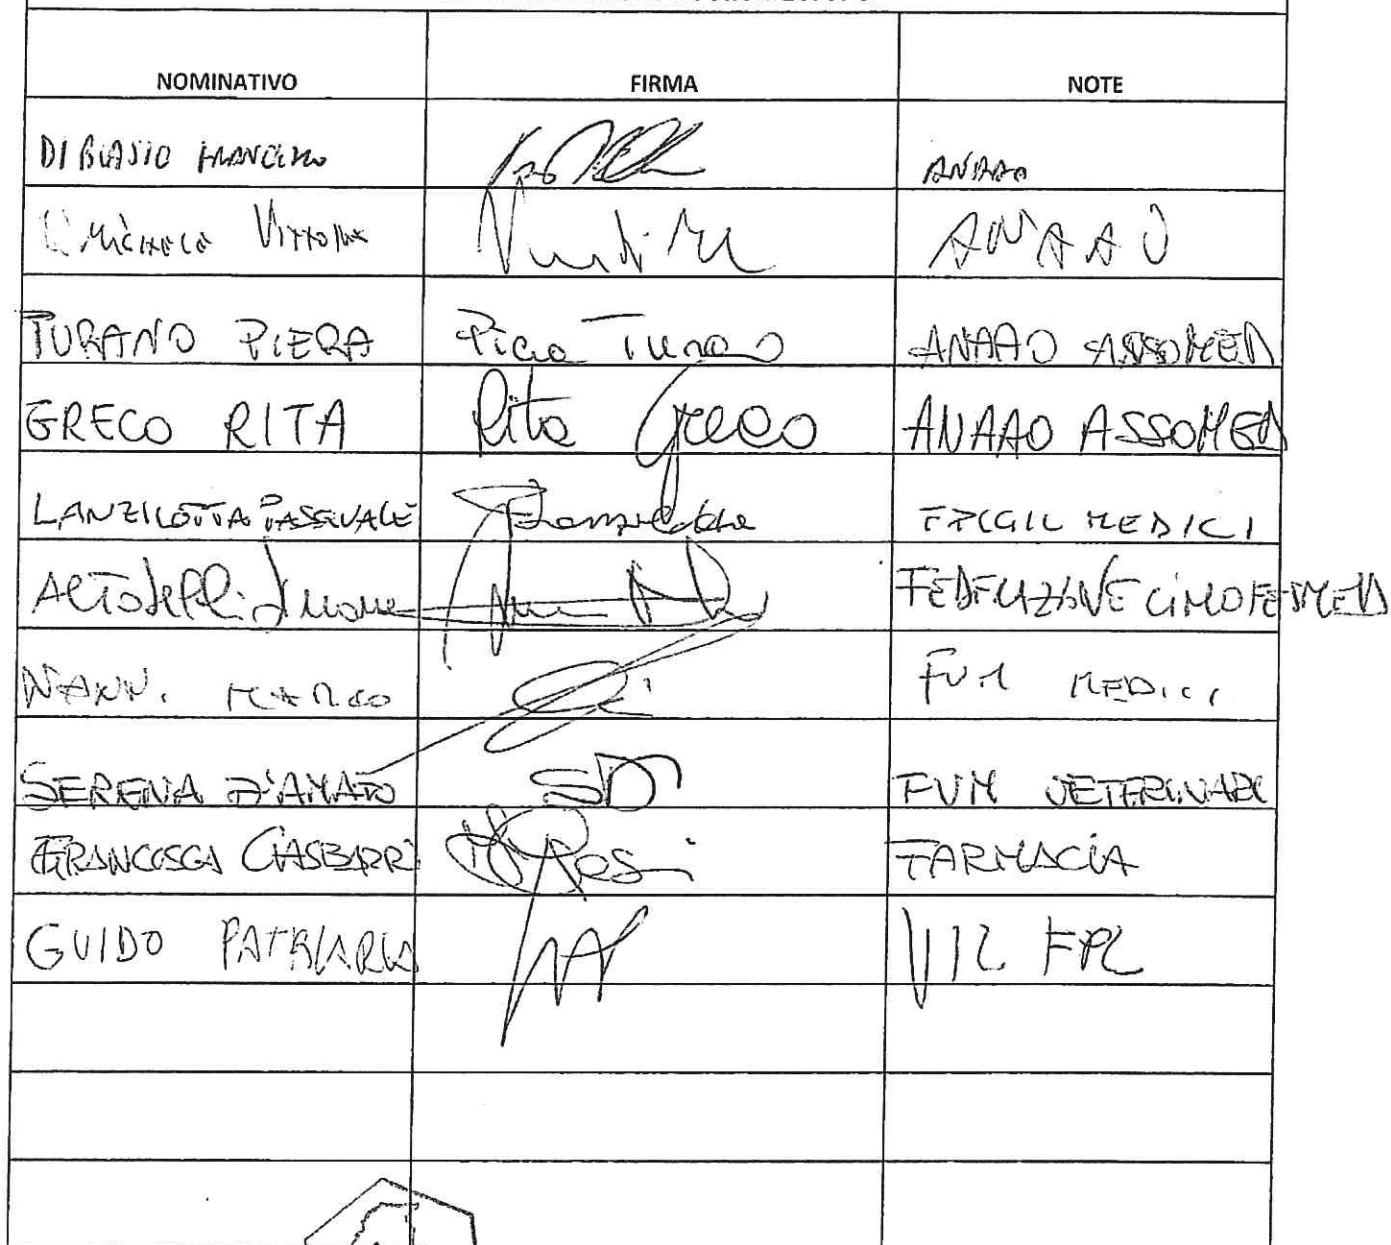 NOMINATIVO FIRMA NOTE
DI BLASIO FRANCESCO ANAAO
VITTORIA ANAAO
TURANO PIERA Piera Turano ANAAO ASSOMED
GRECO RITA Rita Greco ANAAO ASSOMED
LANZILOTTA PASQUALE Lanzilotta FPCGIL MEDICI
Altobelli Simone FEDERAZIONE CIMO FESMED
NANN. MARCO FVM MEDICI
SERENA D'AMATO SD FVM VETERINARI
FRANCESCA GASBARRI FARMACIA
GUIDO PATRIARCA UIL FPL